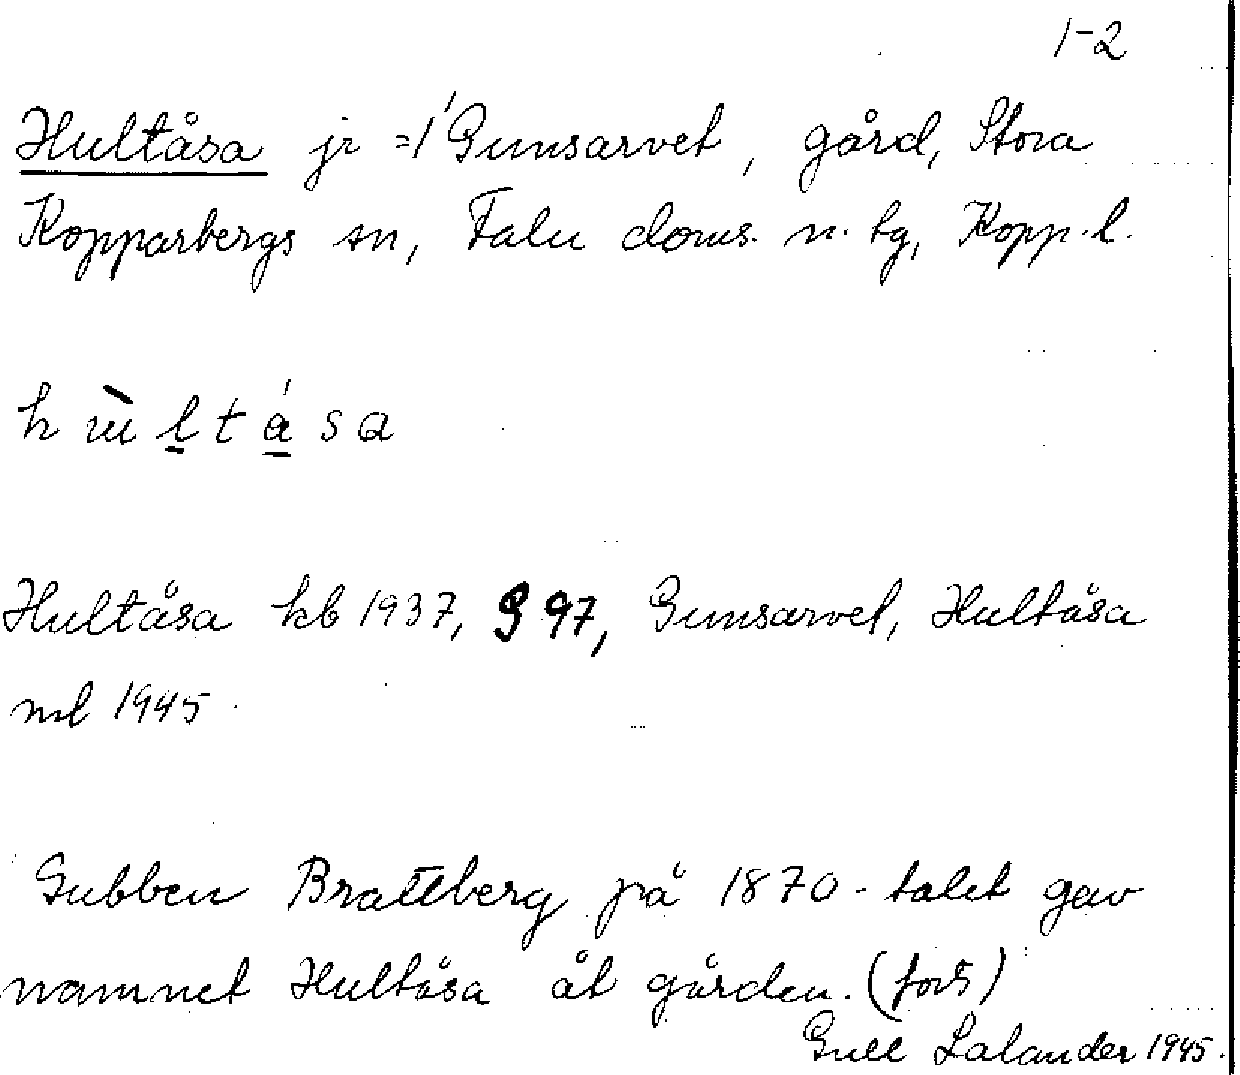 1-2
Hultåsa jr =/ Gunsarvet, gård, Stora
Kopparbergs sn, Falu doms. n. tg, Kopp. l.
h ù l t á s a
Hultåsa kb 1937, § 97, Gunsarvet, Hultåsa
ml 1945.
Gubben Brattberg på 1870-talet gav
namnet Hultåsa åt gården. (forts)
Gull Lalander 1945.